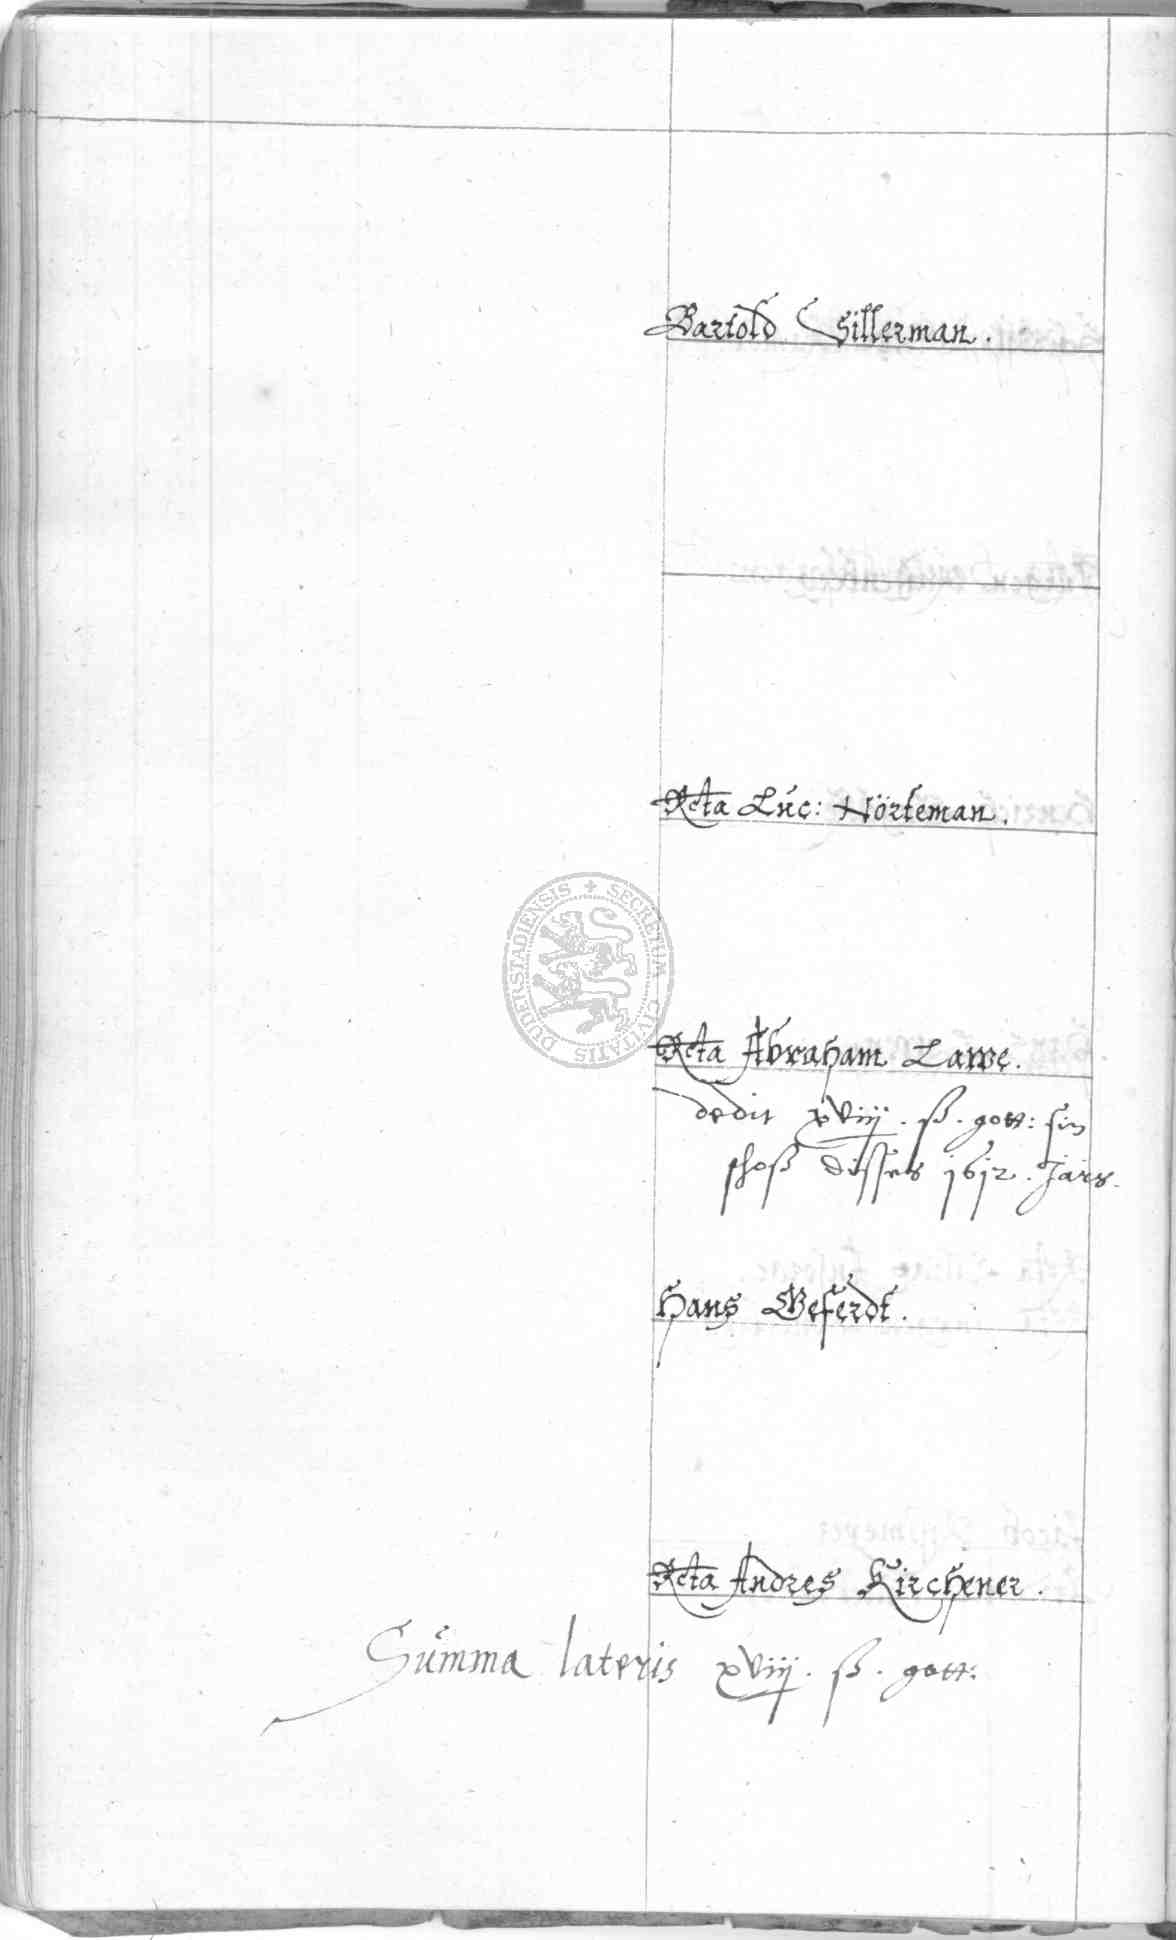 Bartold Hillerman.
Rcta Luc: Nörteman.
SECRETUM CIVITATIS DUDERSTADIENSIS
Rcta Abraham Lawe.
dedit xviij. ß. gott: sin
schoß disses 1612. Jars.
Hans Geferdt.
Rcta Andres Kirchener.
Summa lateris xviij. ß. gott: